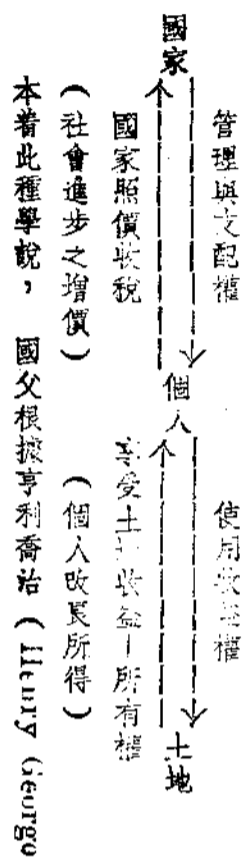 管理與支配權　使用收益權
國家　個人　土地
國家照價收稅　享受土地收益－所有權
（社會進步之增價）　（個人改良所得）
本着此種學說，　國父根據亨利喬治（Henry George